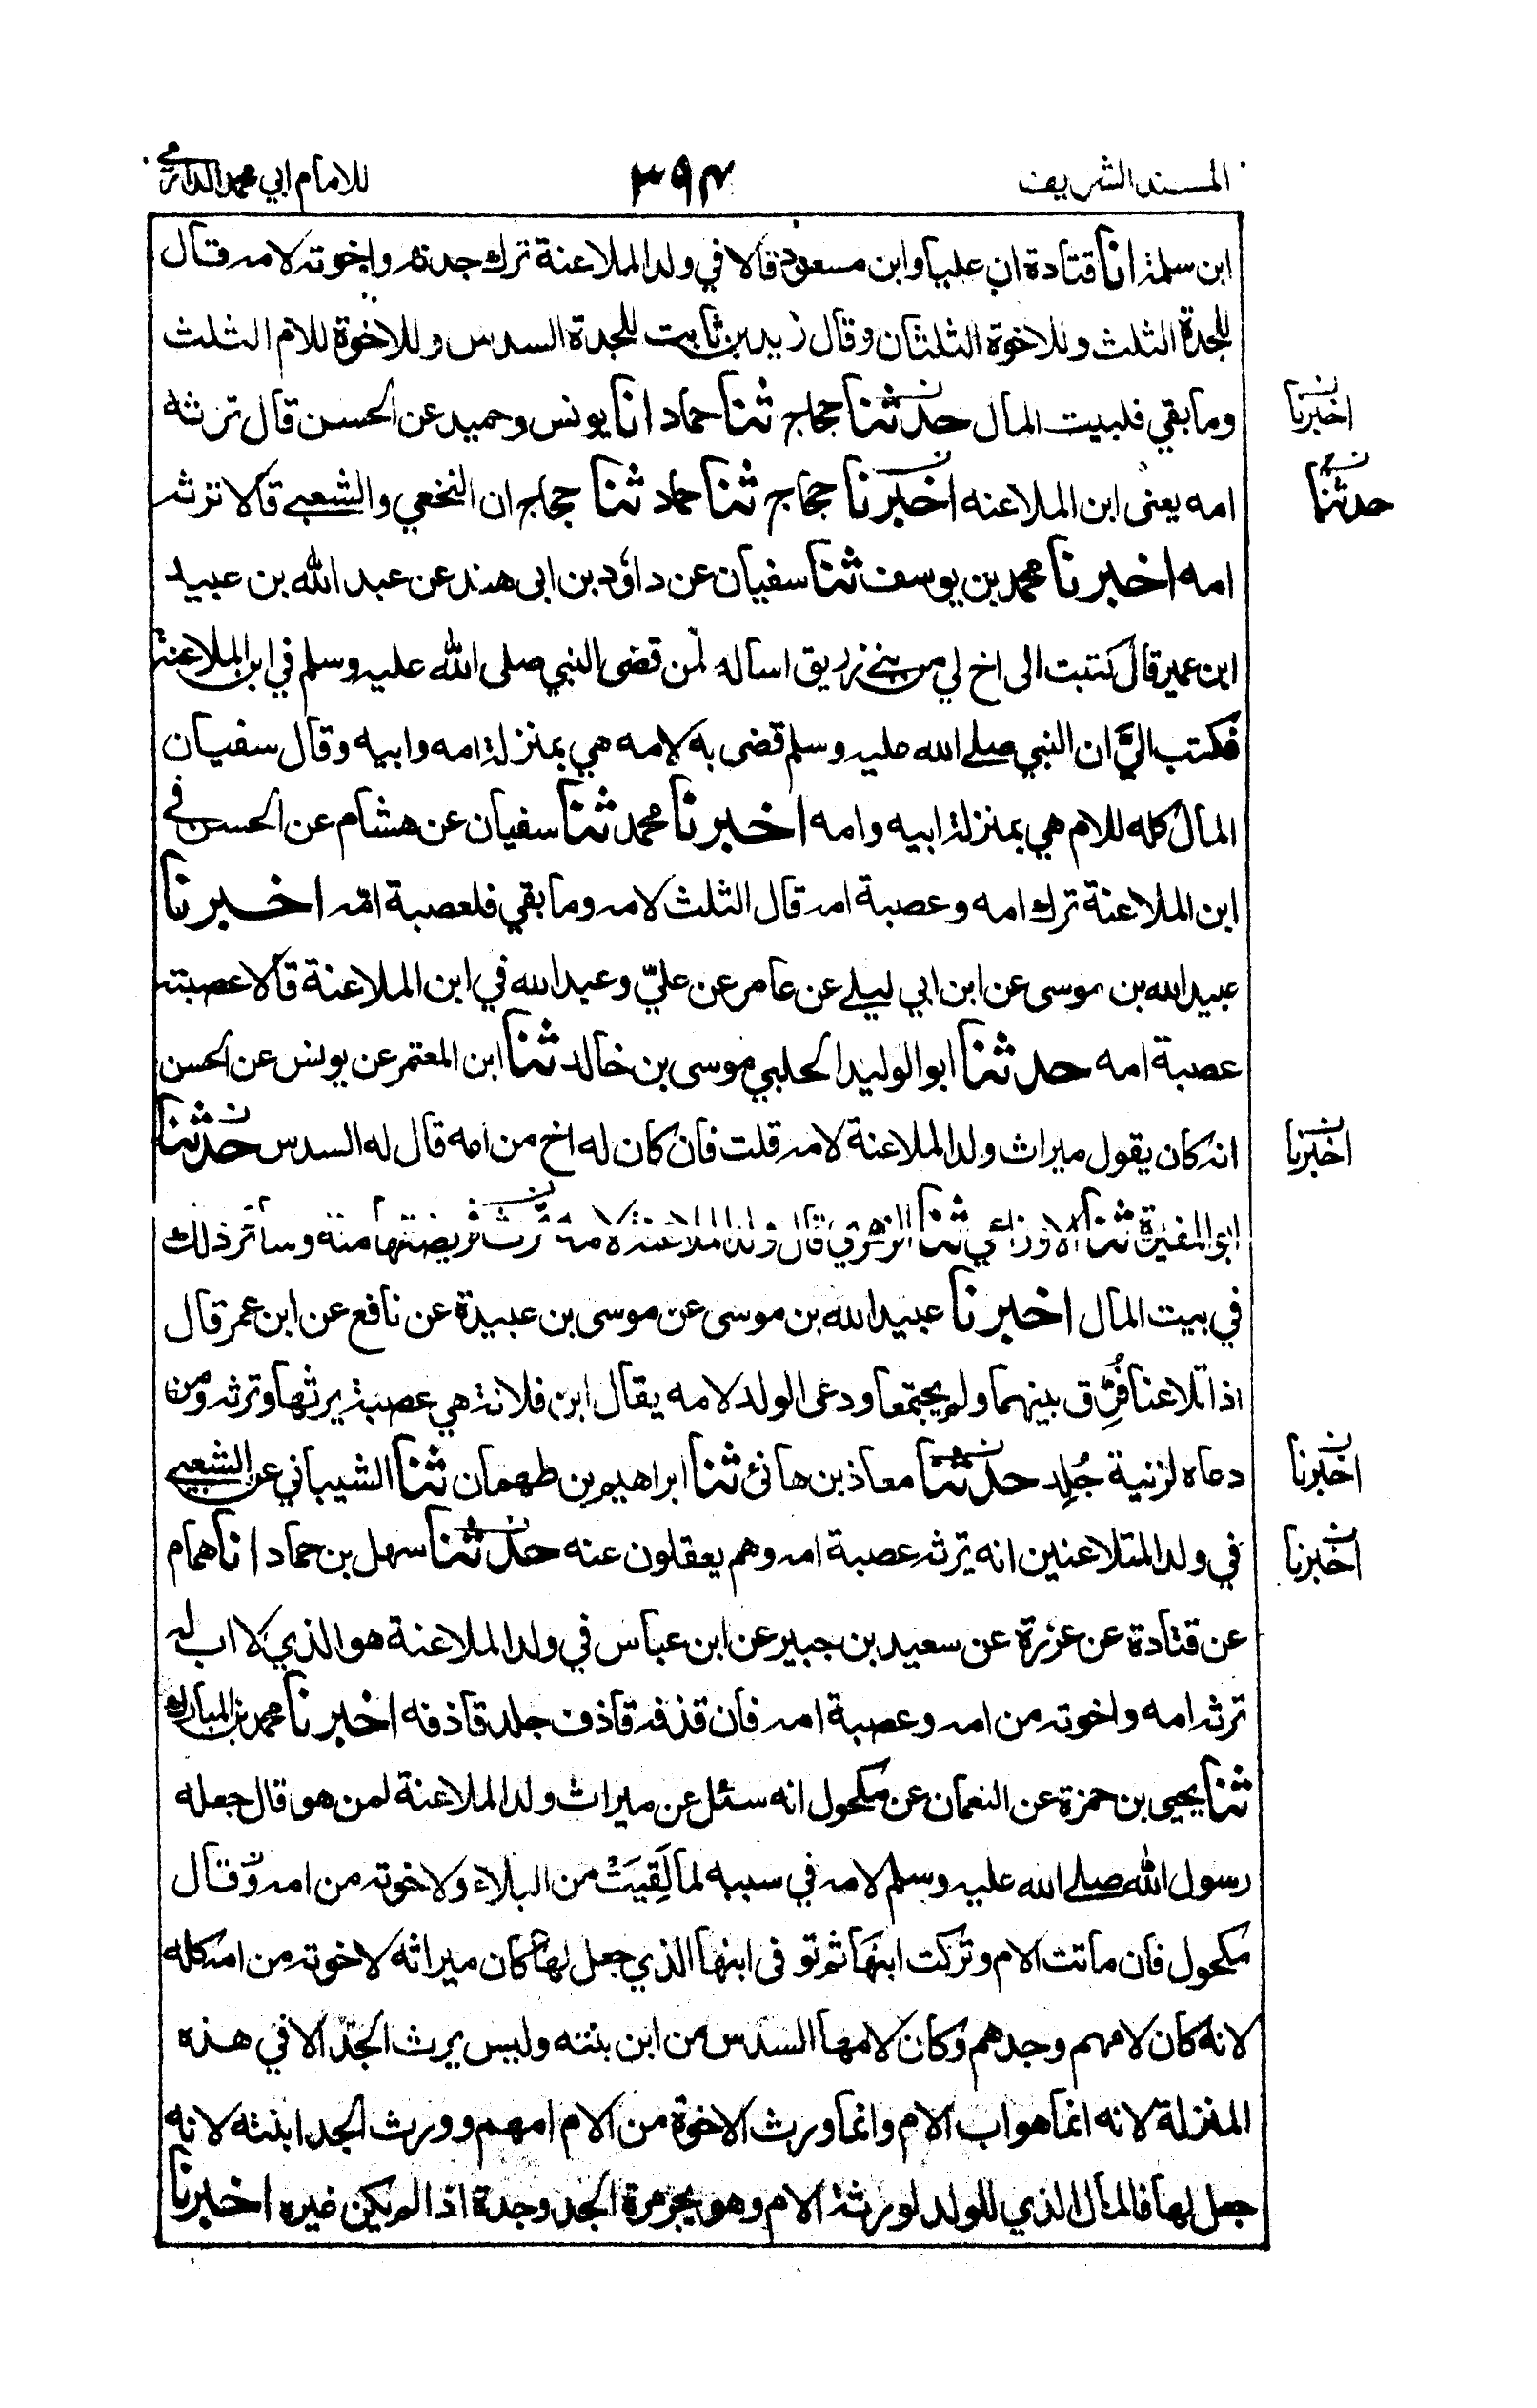 المسند الشريف ٣٩٤ للامام ابي محمد الدارمي
ابن سلمة انا قتادة ان عليا وابن مسعود قالا في ولد الملاعنة ترك جدته واخوته لامه قال
للجدة الثلث وللاخوة الثلثان وقال زيد بن ثابت للجدة السدس وللاخوة للام الثلث
وما بقي فلبيت المال حدثنا حجاج ثنا حماد انا يونس وحميد عن الحسن قال ترثه
اخبرنا
امه يعنى ابن الملاعنه اخبرنا حجاج ثنا حماد ثنا حجاج ان النخعي والشعبي قالا ترثه
حدثنا
امه اخبرنا محمد بن يوسف ثنا سفيان عن داؤد بن ابى هند عن عبد الله بن عبيد
ابن عمير قال كتبت الى اخ لي من بني زريق اساله لمن قضى النبي صلى الله عليه وسلم في ابن الملاعنة
فكتب اليّ ان النبي صلى الله عليه وسلم قضى به لامه هي بمنزلة امه وابيه وقال سفيان
المال كله للام هي بمنزلة ابيه وامه اخبرنا محمد ثنا سفيان عن هشام عن الحسن في
ابن الملاعنة ترك امه وعصبة امه قال الثلث لامه وما بقي فلعصبة امّه اخبرنا
عبيد الله بن موسى عن ابن ابي ليلى عن عامر عن عليّ وعبد الله في ابن الملاعنة قالا عصبته
عصبة امه حدثنا ابو الوليد الحلبي موسى بن خالد ثنا ابن المعتمر عن يونس عن الحسن
انه كان يقول ميراث ولد الملاعنة لامه قلت فان كان له اخ من امه قال له السدس حدثنا
اخبرنا
ابو المغيرة ثنا الاوزاعي ثنا الزهري قال ولد الملاعنة لامه ترث فريضتها منه وسائر ذلك
في بيت المال اخبرنا عبيد الله بن موسى عن موسى بن عبيدة عن نافع عن ابن عمر قال
اذا تلاعنا فُرِّق بينهما ولم يجتمعا ودعى الولد لامه يقال ابن فلانة هي عصبة يرثها وترثه ومن
دعاه لزنية جُلِد حدثنا معاذ بن هانئ ثنا ابراهيم بن طهمان ثنا الشيباني عن الشعبي
اخبرنا
في ولد المتلاعنين انه يرثه عصبة امه وهم يعقلون عنه حدثنا سهل بن حماد انا همام
اخبرنا
عن قتادة عن عزرة عن سعيد بن جبير عن ابن عباس في ولد الملاعنة هو الذي لا اب له
ترثه امه واخوته من امه وعصبة امه فان قذفه قاذف جلد قاذفه اخبرنا محمد بن المبارك
ثنا يحيى بن حمزة عن النعمان عن مكحول انه سئل عن ميراث ولد الملاعنة لمن هو قال جعله
رسول الله صلى الله عليه وسلم لامه في سببه لما لَقِيَتْ من البلاء ولاخوته من امه وقال
مكحول فان ماتت الام وتركت ابنها ثم توفى ابنها الذي جعل لها كان ميراثه لاخوته من امه كله
لانه كان لامهم وجدهم وكان لامها السدس من ابن بنته وليس يرث الجدّ الا في هذه
المنزلة لانه انما هو اب الام وانما ورث الاخوة من الام امهم وورث الجد ابنته لانه
جعل لها فالمال الذي للولد لورثة الام وهو يحرزه الجد وحده اذا لم يكن غيره اخبرنا